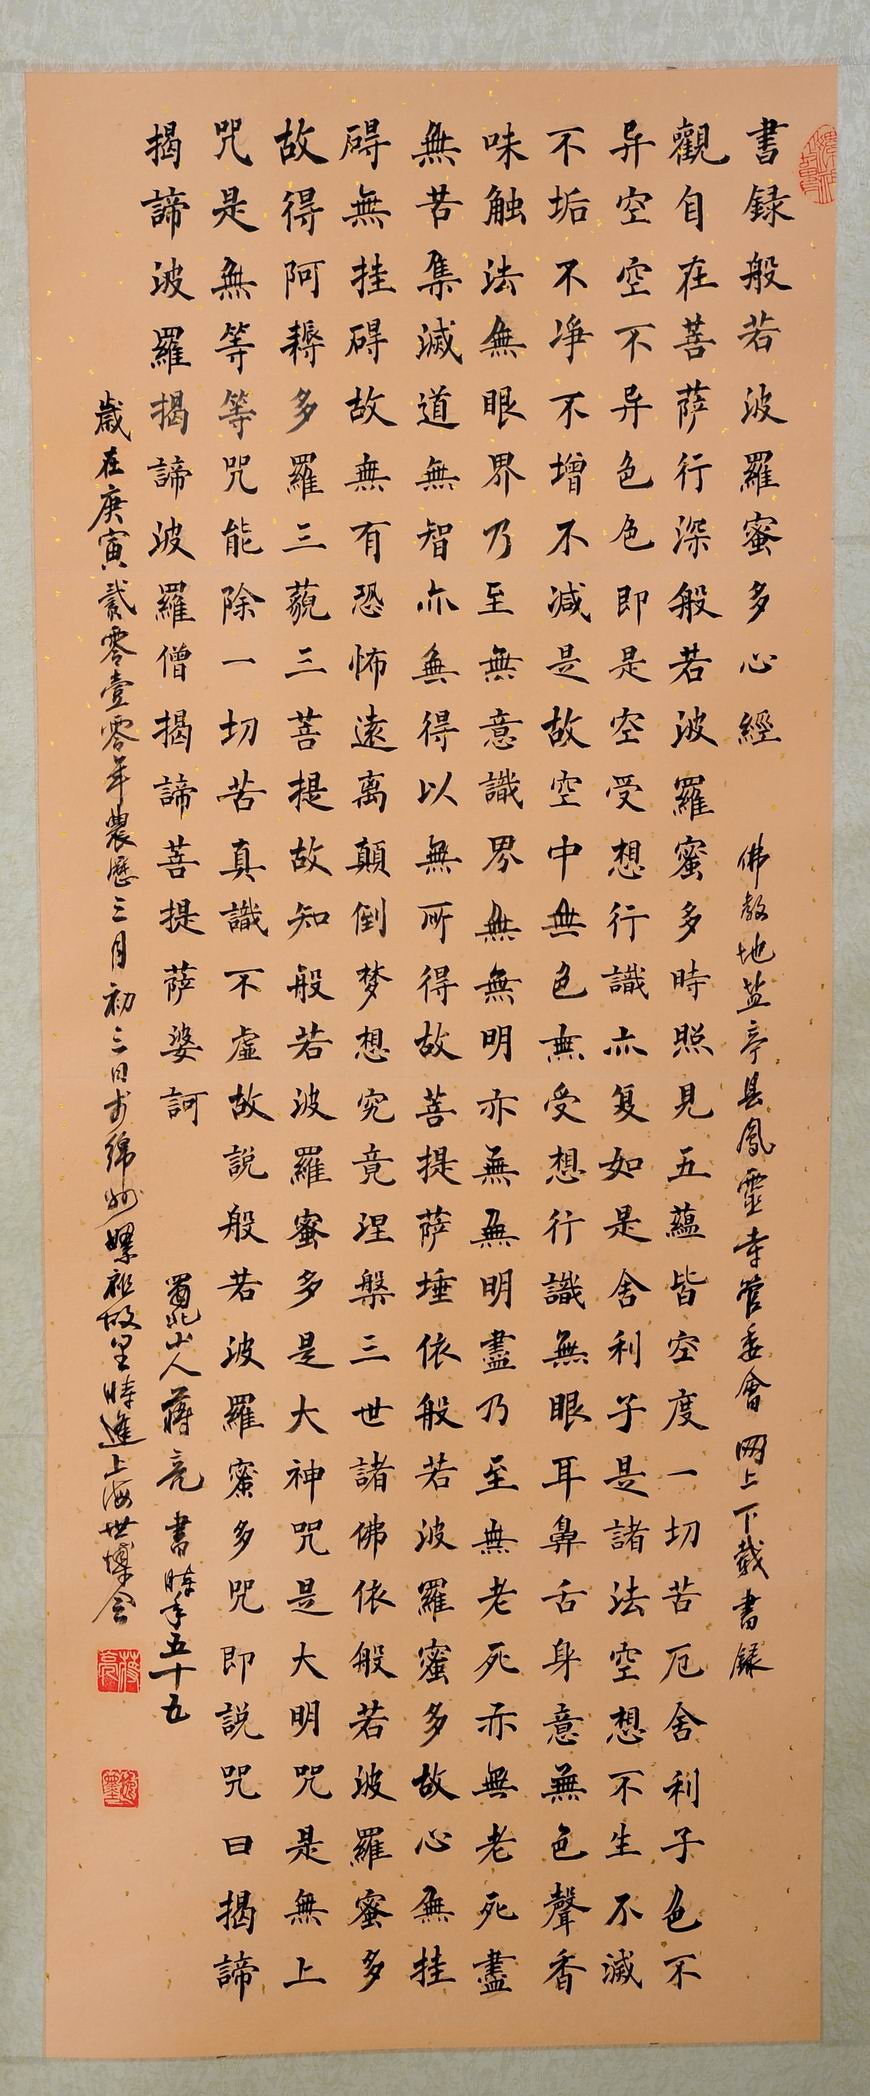 書録般若波羅蜜多心經 佛教地盐亭县鳳靈寺管委會网上下载書録
觀自在菩萨行深般若波羅蜜多時照見五蘊皆空度一切苦厄舍利子色不
异空空不异色色即是空受想行識亦复如是舍利子是諸法空想不生不滅
不垢不净不增不减是故空中無色無受想行識無眼耳鼻舌身意無色聲香
味触法無眼界乃至無意識界無無明亦無無明盡乃至無老死亦無老死盡
無苦集滅道無智亦無得以無所得故菩提萨埵依般若波羅蜜多故心無挂
碍無挂碍故無有恐怖遠离顛倒梦想究竟涅槃三世諸佛依般若波羅蜜多
故得阿耨多羅三藐三菩提故知般若波羅蜜多是大神咒是大明咒是無上
咒是無等等咒能除一切苦真識不虚故説般若波羅蜜多咒即説咒曰揭諦
揭諦波羅揭諦波羅僧揭諦菩提萨婆訶 蜀北山人蒋亮書時年五十五
歲在庚寅贰零壹零年農歷三月初三日于绵州嫘祖故里時逢上海世博会
蒋亮